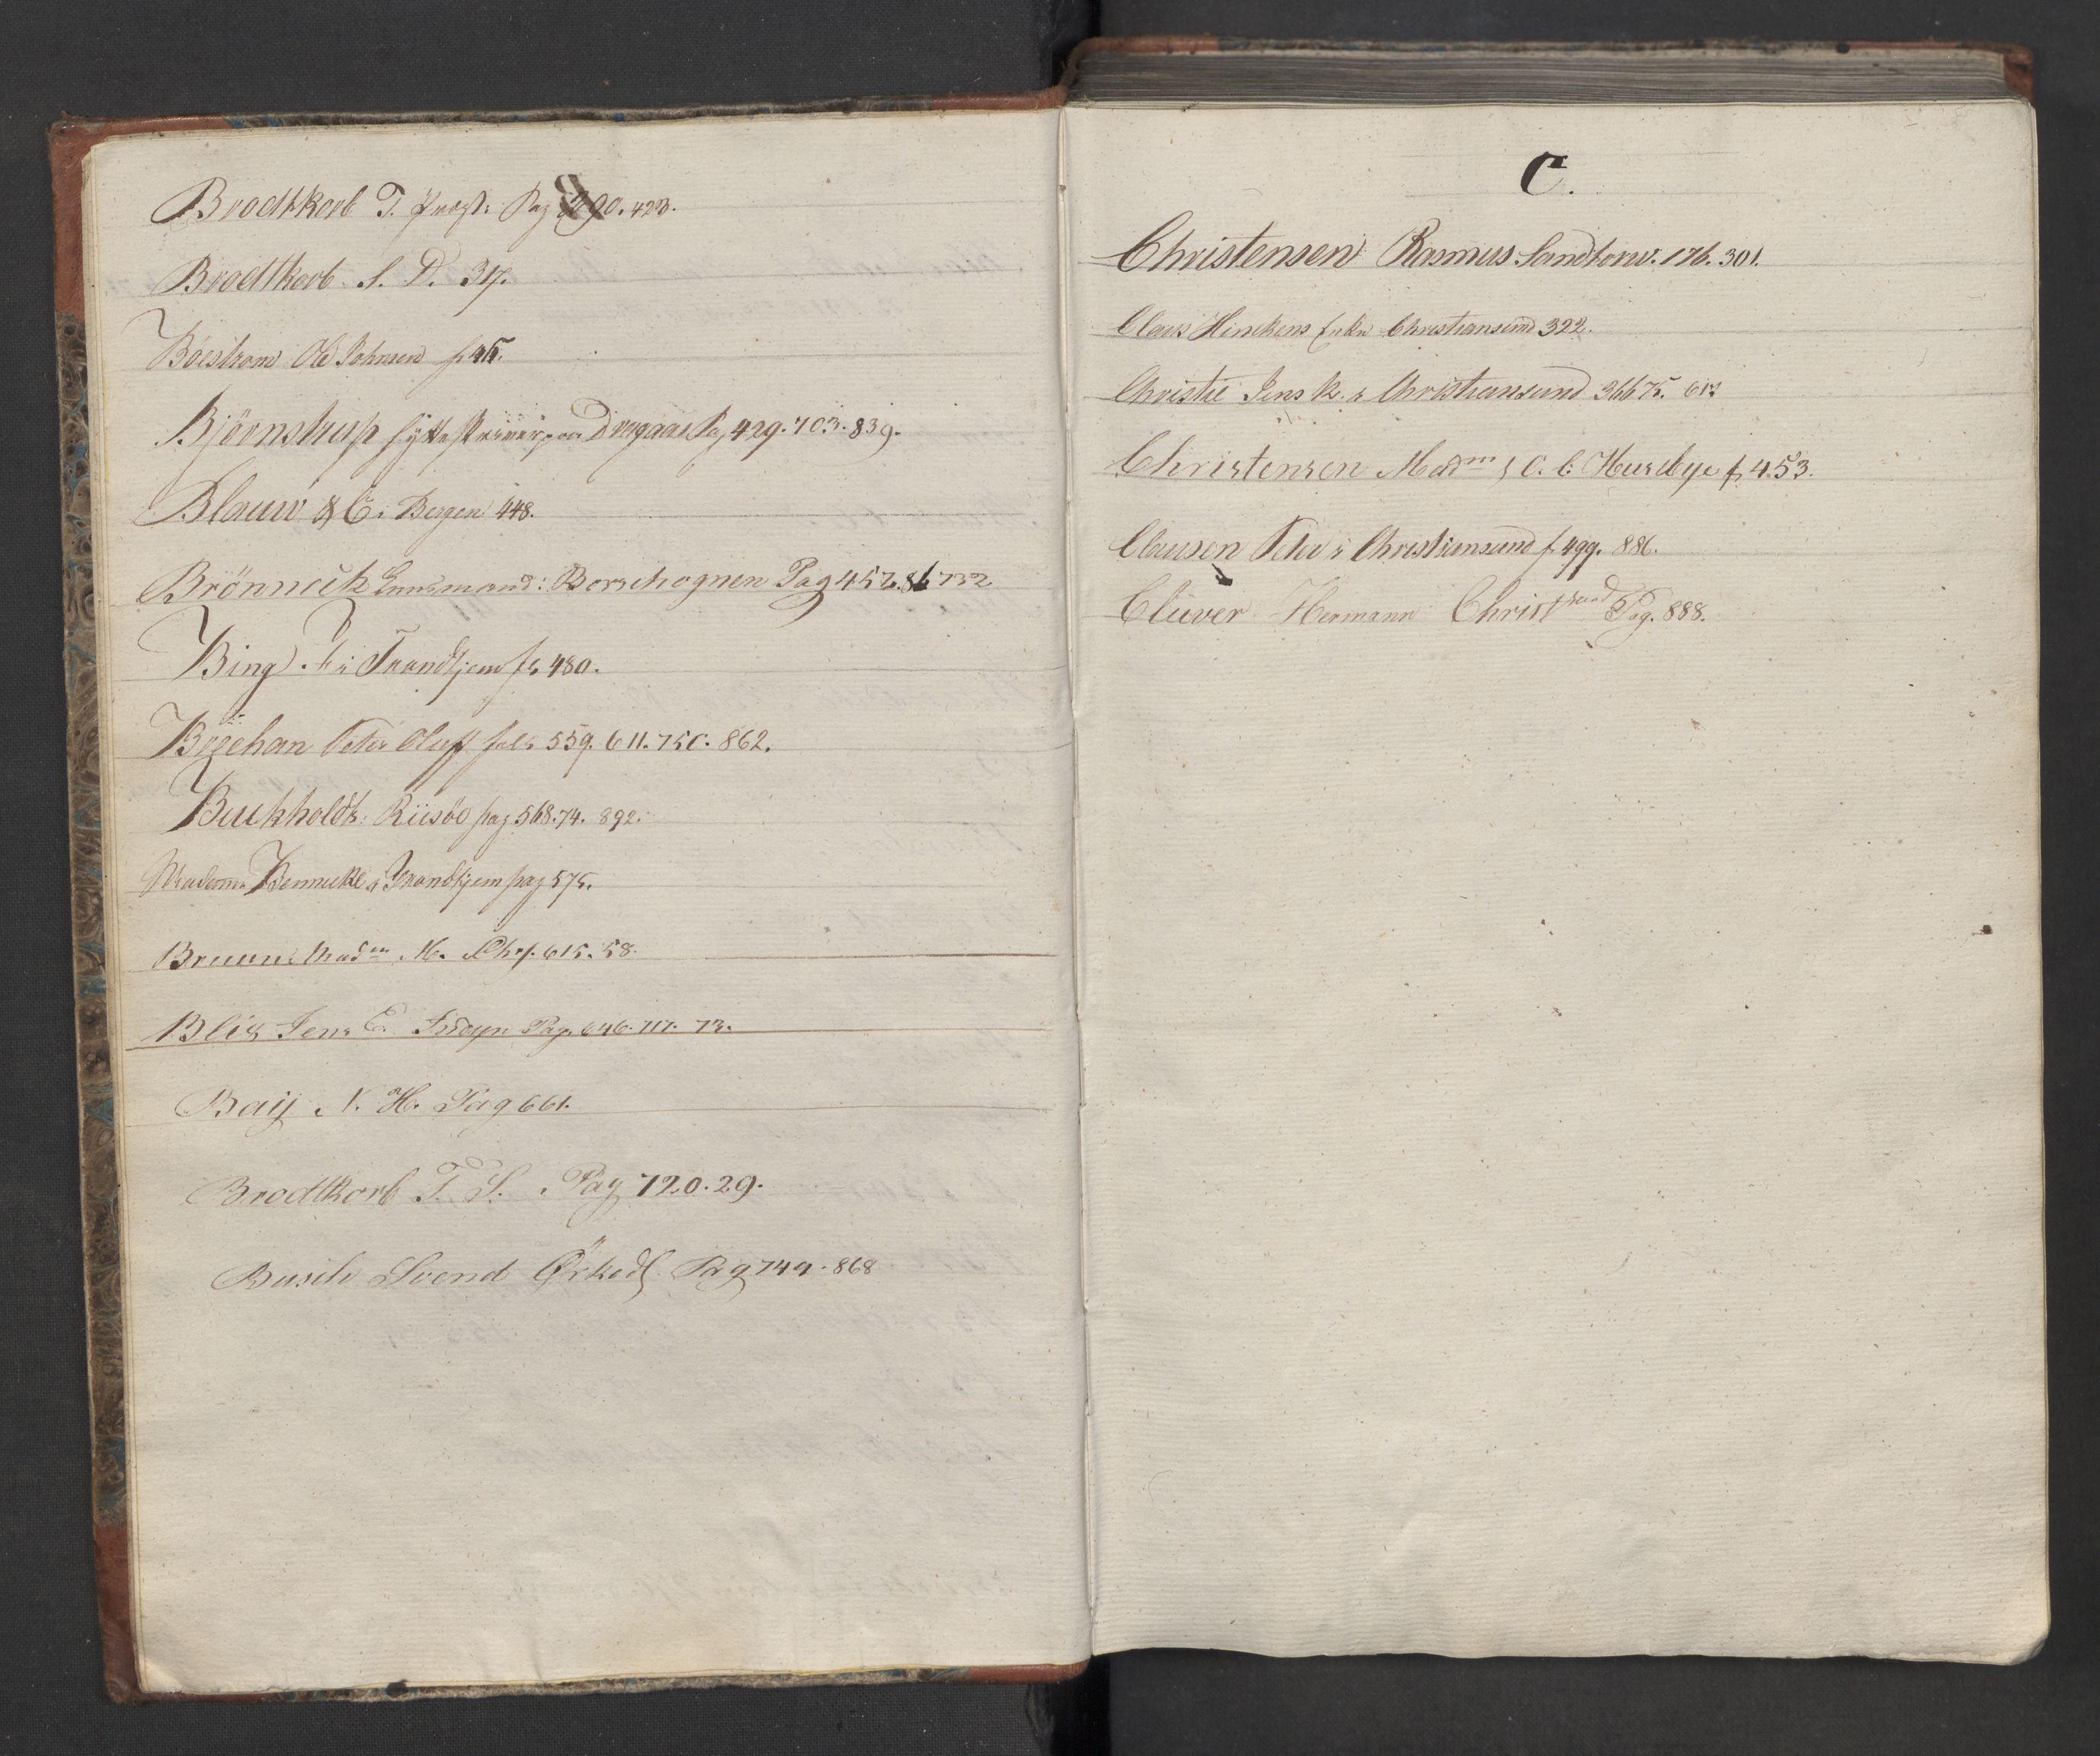 Brodtkorb T. Præst: Pag 423.
Brodtkorb S. D. 317.
Boestrom Ole Johnsen f 415.
Björnstrup Hytteskriver paa Dragaas Pag 429. 703. 839.
Blauw & C: i Bergen 448.
Brönneck Lensmand: Borschognen Pag 457. 86 732
Bing i Trondhjem f: 480.
Brechan Peter Oluff fol: 559. 611. 750. 862.
Buckholdt: Riisöe pag 568. 74. 892.
Madame Bennecke i Trondhjem pag 575.
Bruun Madm M. Chr. 615. 58.
Blix Jens E. Inderøen Pag. 646. 717. 73.
Baij N. H. Pag 661.
Brodtkorb T. S. Pag 720. 29.
Busch Svend Ørkedl Pag 749. 868
C.
Christensen Rasmus Sandtorv. 176. 301.
Claus Hinckens Enke Christiansund 322.
Christie Jens K. i Christiansund 366 75. 613
Christensen Madm i C. C. Husebye f. 453.
Clausen Peter i Christiansund f. 499. 886.
Clüver Hermann Christsund Pag. 888.